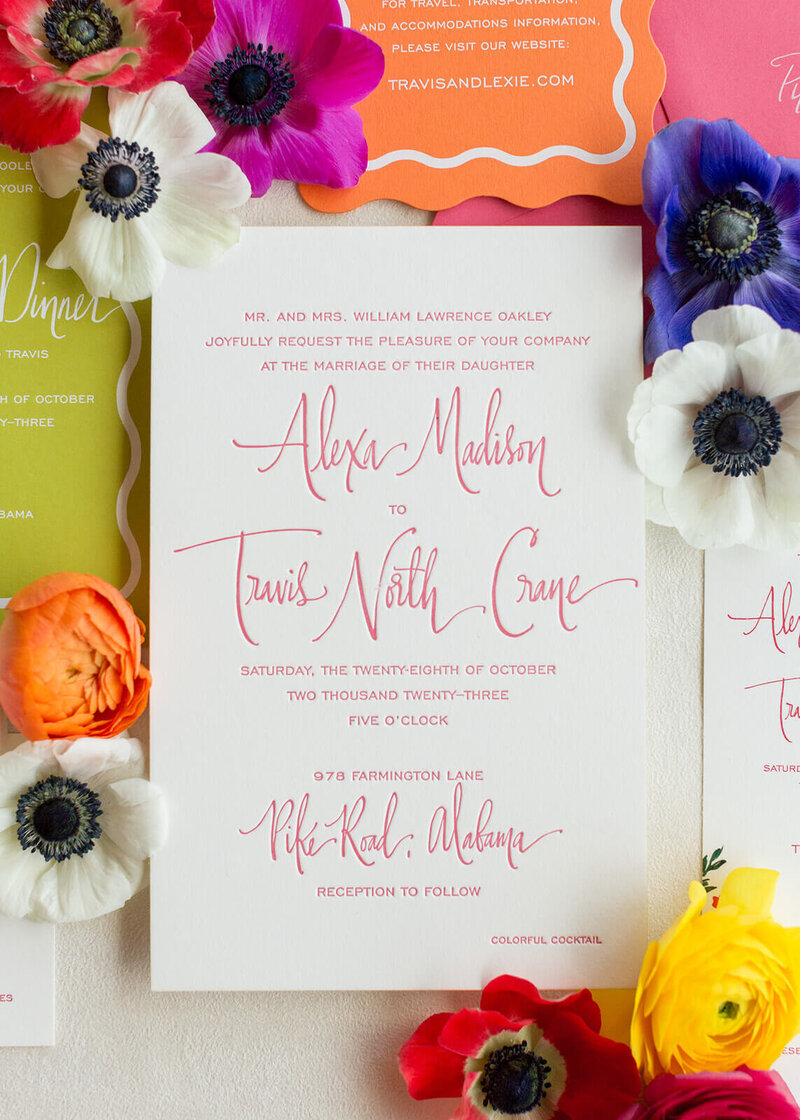 FOR TRAVEL, TRANSPORTATION,
AND ACCOMMODATIONS INFORMATION,
PLEASE VISIT OUR WEBSITE:
TRAVISANDLEXIE.COM
YOUR
Dinner
TRAVIS
OF OCTOBER
MR. AND MRS. WILLIAM LAWRENCE OAKLEY
JOYFULLY REQUEST THE PLEASURE OF YOUR COMPANY
AT THE MARRIAGE OF THEIR DAUGHTER
Alexa Madison
TO
Travis North Crane
SATURDAY, THE TWENTY-EIGHTH OF OCTOBER
TWO THOUSAND TWENTY–THREE
FIVE O'CLOCK
978 FARMINGTON LANE
Pike Road, Alabama
RECEPTION TO FOLLOW
COLORFUL COCKTAIL